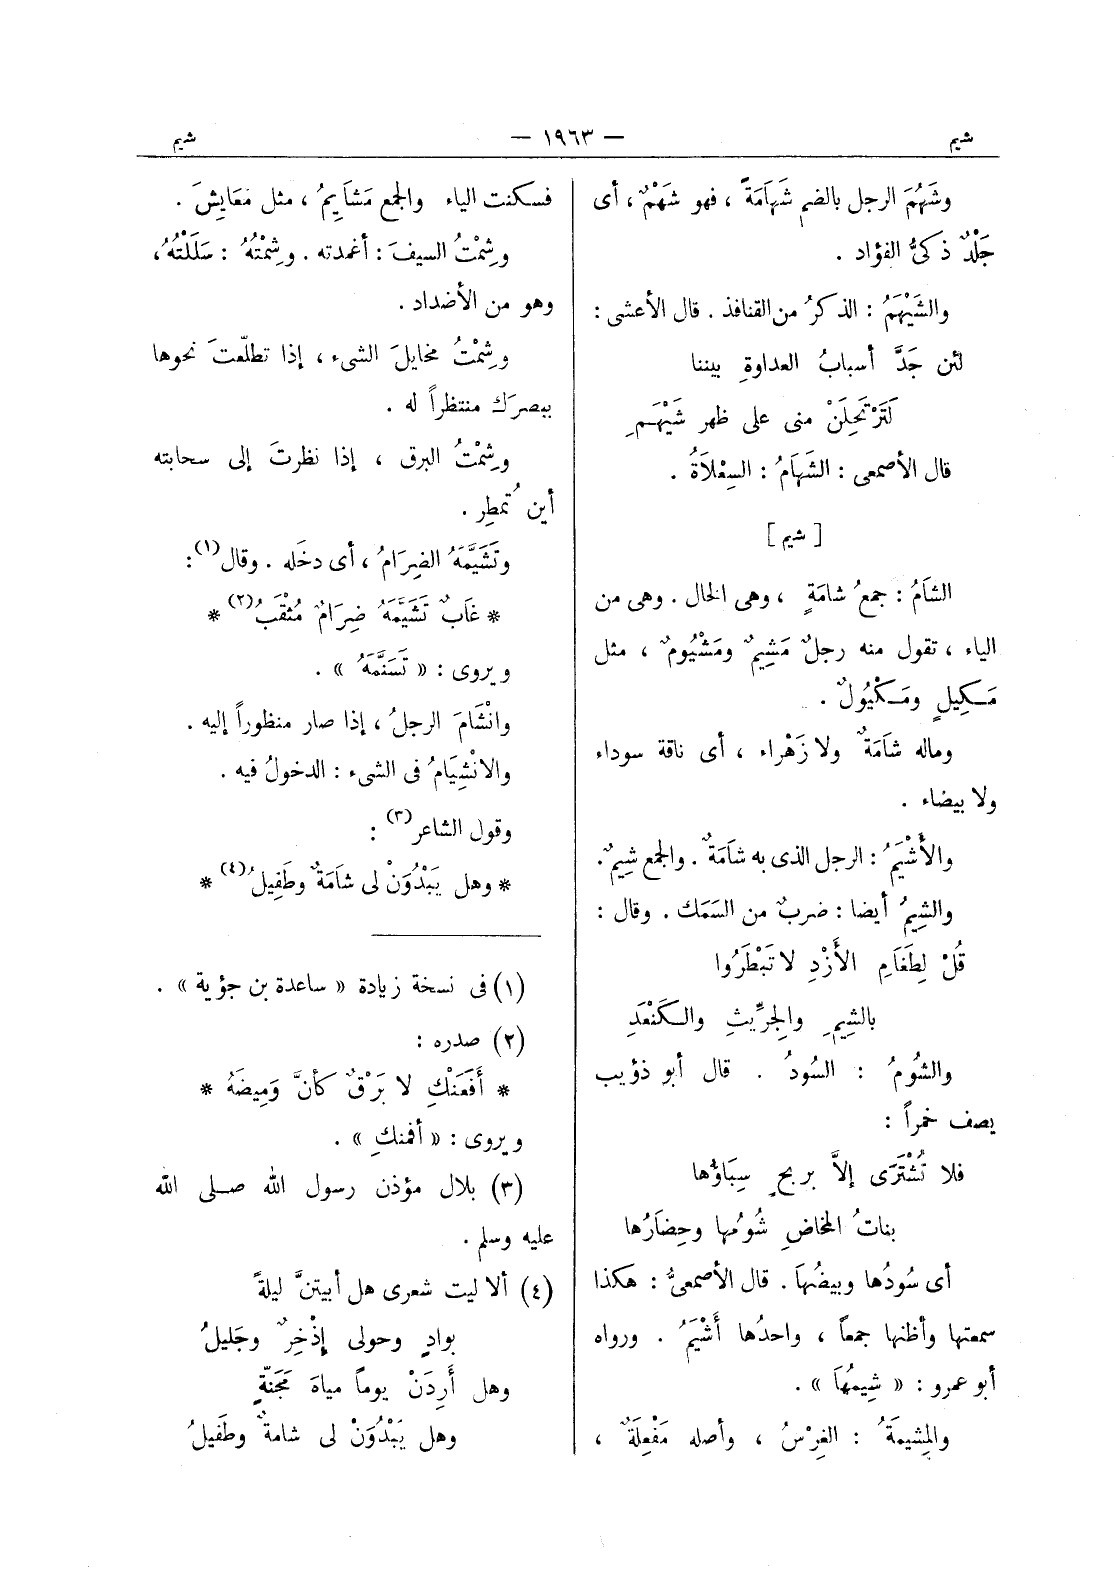 شيم
— ١٩٦٣ —
شيم
وشَهُمَ الرجل بالضم شَهَامَةً ، فهو شَهْمٌ ، أى
جَلْدٌ ذكىُّ الفؤاد .
والشَيْهَمُ : الذكرُ من القنافذ . قال الأعشى :
لئن جَدَّ أسبابُ العداوةِ بيننا
لَتَرْتَحِلَنْ منى على ظهر شَيْهَمِ
قال الأصمعى : الشَهَامُ : السِعْلَاةُ .
[ شيم ]
الشَامُ : جمعُ شامَةٍ ، وهى الخال . وهى من
الياء ، تقول منه رجلٌ مَشِيمٌ ومَشْيُومٌ ، مثل
مَكِيلٍ ومَكْيُولٌ .
وماله شَامَةٌ ولا زَهْراء ، أى ناقة سوداء
ولا بيضاء .
والأَشْيَمُ : الرجل الذى به شَامَةٌ . والجمع شِيمٌ .
والشِيمُ أيضا : ضربٌ من السَمَك . وقال :
قُلْ لِطَغَامِ الأَزْدِ لا تَبْطَرُوا
بالشِيمِ والجِرِّيثِ والكَنْعَدِ
والشُومُ : السُودُ . قال أبو ذؤيب
يصف خمراً :
فلا تُشْتَرَى إلاَّ بربحٍ سِبَاؤُها
بناتُ المخاضِ شُومُها وحِضَارُها
أى سُودُها وبيضُها . قال الأصمعىُّ : هكذا
سمعتها وأظنها جمعاً ، واحدُها أَشْيَمُ . ورواه
أبو عمرو : « شِيمُهَا » .
والمِشيمَةُ : الغِرْسُ ، وأصله مَفْعِلَةٌ ،
فسكنت الياء والجمع مَشَايِمُ ، مثل مَعَايِشَ .
وشِمْتُ السيفَ : أغمدته . وشِمْتُهُ : سَلَلْتُهُ ،
وهو من الأضداد .
وشِمْتُ مخايلَ الشىء ، إذا تطلّعتَ نحوها
ببصرَك منتظراً له .
وشِمْتُ البرق ، إذا نظرتَ إلى سحابته
أين تُمطِر .
وتَشَيَّمَهُ الضِرَامُ ، أى دخَله . وقال (١) :
* غَابٌ تَشَيَّمَهُ ضِرَامٌ مُثْقَبُ (٢) *
ويروى : « تَسَنَّمَهُ » .
وانْشَامَ الرجلُ ، إذا صار منظوراً إليه .
والانْشِيَامُ فى الشىء : الدخولُ فيه .
وقول الشاعر (٣) :
* وهل يَبْدُوَنْ لى شامَةٌ وطَفِيلُ (٤) *
(١) فى نسخة زيادة « ساعدة بن جؤية » .
(٢) صدره :
* أَفَعَنْكِ لا بَرْقٌ كأنَّ وَمِيضَهُ *
ويروى : « أفمنكِ » .
(٣) بلال مؤذن رسول الله صلى الله
عليه وسلم .
(٤) ألا ليت شعرى هل أبيتنَّ ليلةً
بوادٍ وحولى إِذْخِرٌ وجَليلُ
وهل أَرِدَنْ يوماً مياهَ مَجَنّةٍ
وهل يَبْدُوَنْ لى شامةٌ وطَفيلُ